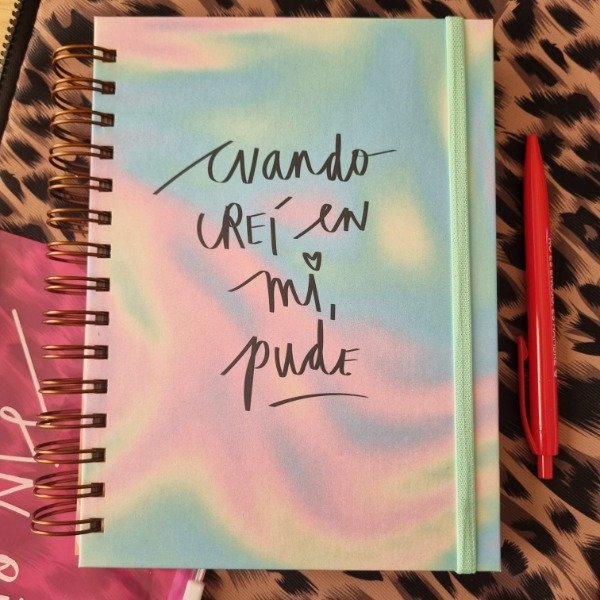 cuando
CREÍ en
mi,
pude